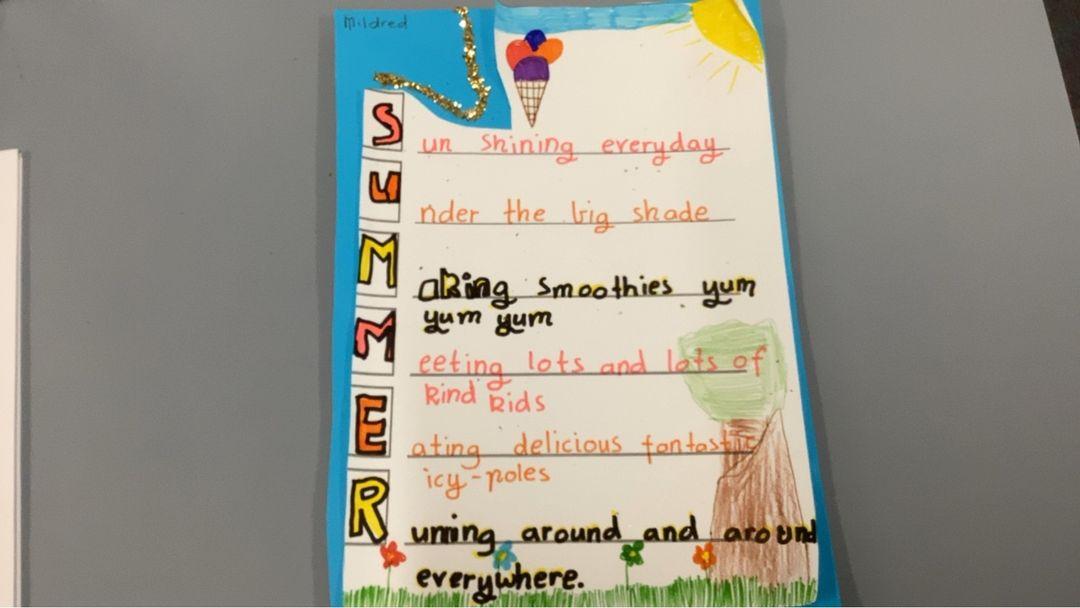 Mildred
Sun shining everyday
under the big shade
Making smoothies yum
yum yum
Meeting lots and lots of
kind kids
Eating delicious fantastic
icy-poles
Running around and around
everywhere.